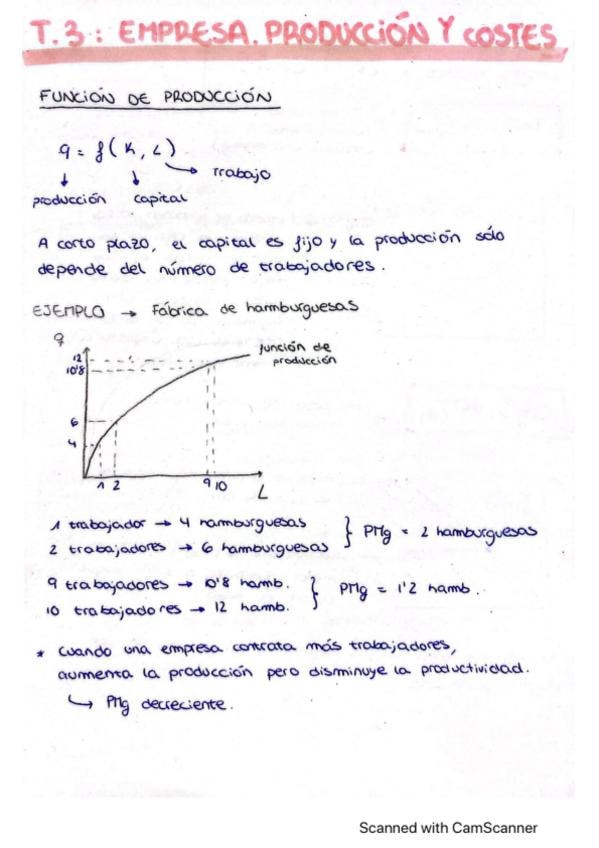 T.3: EMPRESA. PRODUCCIÓN Y COSTES
FUNCIÓN DE PRODUCCIÓN
q = f(K, L)
Trabajo
producción capital
A corto plazo, el capital es fijo y la producción sólo
depende del número de trabajadores.
EJEMPLO → Fábrica de hamburguesas
q
función de
producción
12
10'8
6
4
1 2 9 10
L
1 trabajador → 4 hamburguesas
2 trabajadores → 6 hamburguesas
} PMg = 2 hamburguesas
9 trabajadores → 10'8 hamb.
10 trabajadores → 12 hamb.
} PMg = 1'2 hamb.
* Cuando una empresa contrata más trabajadores,
aumenta la producción pero disminuye la productividad.
↳ PMg decreciente.
Scanned with CamScanner